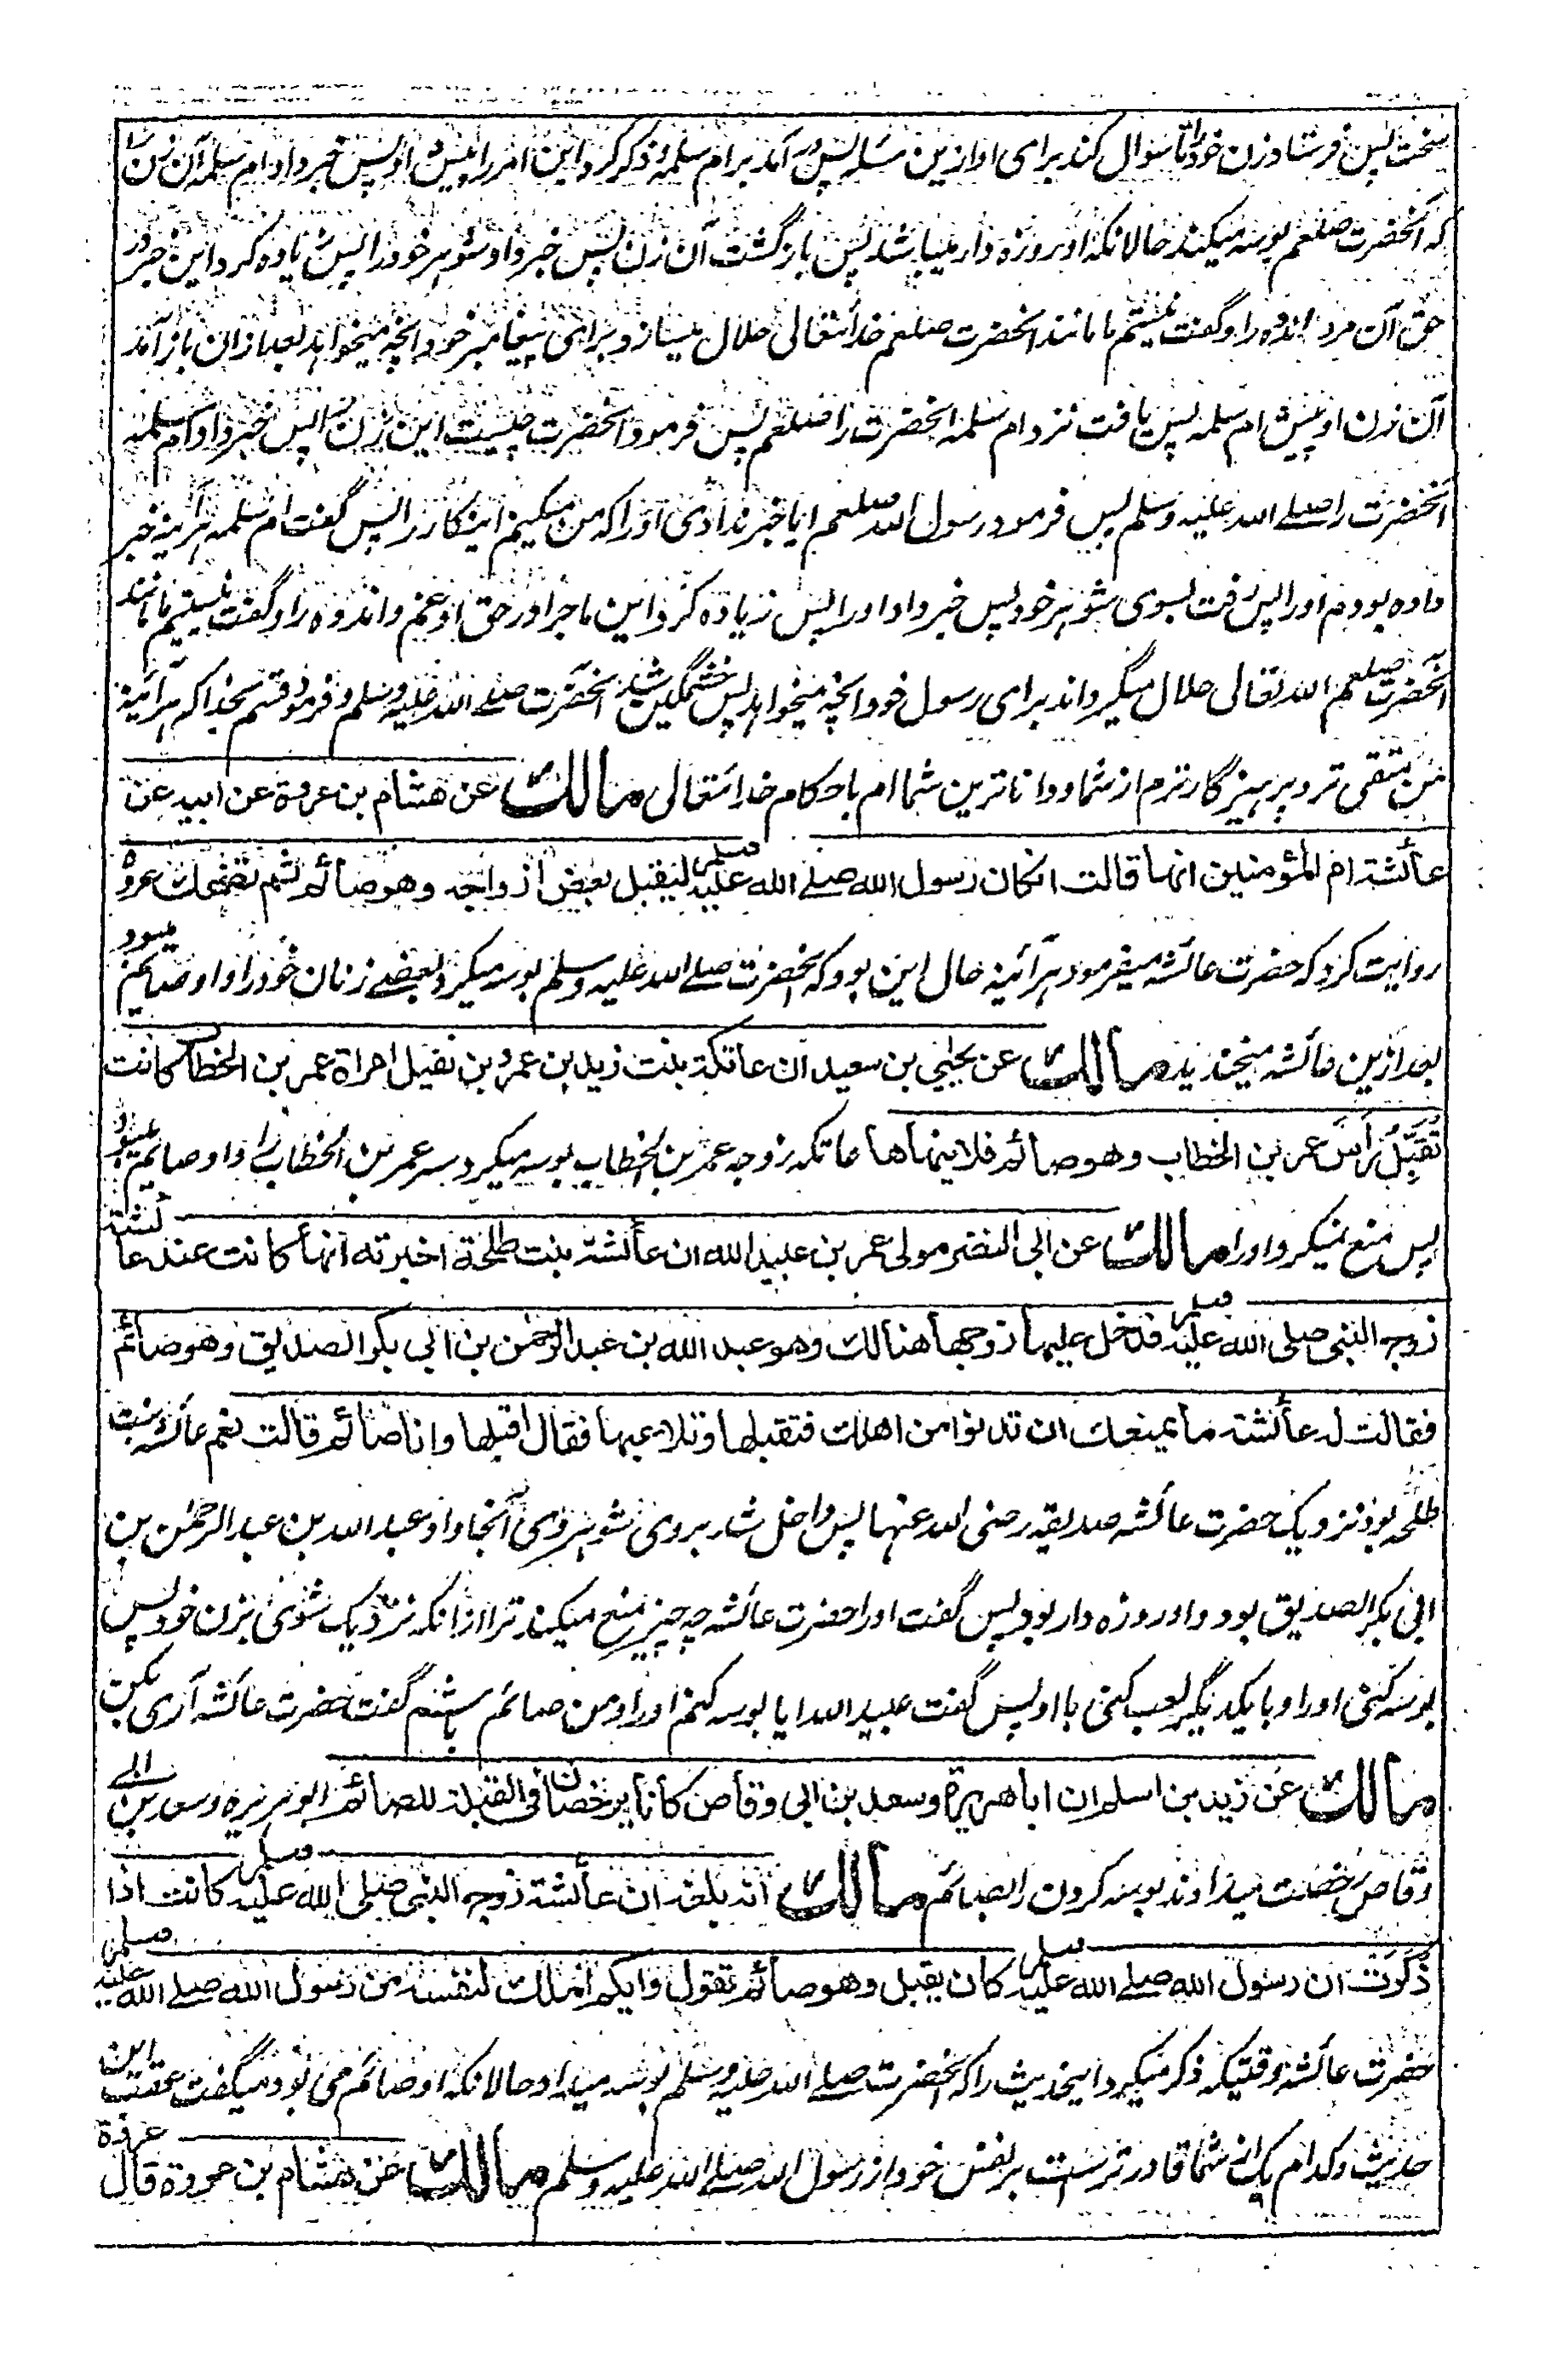 سخت پس فرستاد زن خود را تا سوال کند برای او ازین مسئله پس در آمد بر ام سلمه و ذکر کرد این امر را پیش او پس خبر داد ام سلمه آن زن را
که آنحضرت صلعم بوسه میکند حالانکه او روزه دار میباشد پس بازگشت آن زن پس خبر داد شوهر خود را پس زیاده کرد این خبر در
حق آن مرد اندوه را و گفت نیستم ما مانند آنحضرت صلعم خدا تعالی حلال میسازد برای پیغامبر خود آنچه میخواهد بعد ازان باز آمد
آن زن او پیش ام سلمه پس یافت نزد ام سلمه آنحضرت را صلعم پس فرمود آنحضرت چیست این زن را پس خبر داد ام سلمه
آنحضرت را صلے الله علیه وسلم پس فرمود رسول الله صلعم ایا خبر ندادی او را که من میکنم اینکار را پس گفت ام سلمه هر آینه خبر
داده بودم او را پس رفت بسوی شوهر خود پس خبر داد او را پس زیاده کرد این ماجرا در حق او غم و اندوه را و گفت نیستیم ما مانند
آنحضرت صلعم الله تعالی حلال میگرداند برای رسول خود آنچه میخواهد پس خشمگین شد آنحضرت صلے الله علیه وسلم و فرمود قسم بخدا که هر آئینه
من متقی تر و پرهیزگار ترم از شما و دانا ترین شما ام باحکام خدا تعالی مالك عن هشام بن عروة عن ابیه عن
عائشة ام المؤمنین انها قالت ان کان رسول الله صلے الله علیه وسلم لیقبل بعض ازواجه وهو صائم ثم تضحك عروه
روایت کرد که حضرت عائشه میفرمود هر آئینه حال این بود که آنحضرت صلے الله علیه وسلم بوسه میکرد بعضے زنان خود را و او صائم میبود
بعد ازین عائشه میخندید مالك عن یحیی بن سعید ان عاتکة بنت زید بن عمرو بن نفیل امراة عمر بن الخطاب کانت
تقبل راس عمر بن الخطاب وهو صائم فلا ینهاها عاتکه زوجه عمر بن الخطاب بوسه میکرد سر عمر بن الخطاب را و او صائم میبود
پس منع نمیکرد او را مالك عن ابی النضر مولی عمر بن عبید الله ان عائشة بنت طلحة اخبرته انها کانت عند عائشة
زوجه النبی صلی الله علیه وسلم فدخل علیها زوجها هنالك وهو عبد الله بن عبد الرحمن بن ابی بکر الصدیق وهو صائم
فقالت له عائشة ما یمنعك ان تدنوا من اهلك فتقبلها وتلاعبها فقال اقبلها وانا صائم قالت نعم عائشه بنت
طلحه بود نزدیک حضرت عائشه صدیقه رضی الله عنها پس داخل شد بر وی شوهر وی آنجا و او عبد الله بن عبد الرحمن بن
ابی بکر الصدیق بود و او روزه دار بود پس گفت او را حضرت عائشه چه چیز منع میکند ترا از انکه نزدیک شوی بزن خود پس
بوسه کنی او را و با یکدیگر لعب کنی با او پس گفت عبد الله ایا بوسه کنم او را و من صائم باشم گفت حضرت عائشه آری بکن
مالك عن زید بن اسلم ان ابا هریرة وسعد بن ابی وقاص کانا یرخصان فی القبلة للصائم ابو هریره و سعد بن ابی
وقاص رخصت میدادند بوسه کردن را بصائم مالك انه بلغه ان عائشة زوجه النبی صلی الله علیه وسلم کانت اذا
ذکرت ان رسول الله صلے الله علیه وسلم کان یقبل وهو صائم تقول وایکم املك لنفسه من رسول الله صلے الله علیه وسلم
حضرت عائشه وقتیکه ذکر میکرد اینحدیث را که آنحضرت صلے الله علیه وسلم بوسه میداد حالانکه او صائم می بود میگفت عقب این
حدیث و کدام یک از شما قادر ترست بر نفس خود از رسول الله صلے الله علیه وسلم مالك عن هشام بن عروة قال